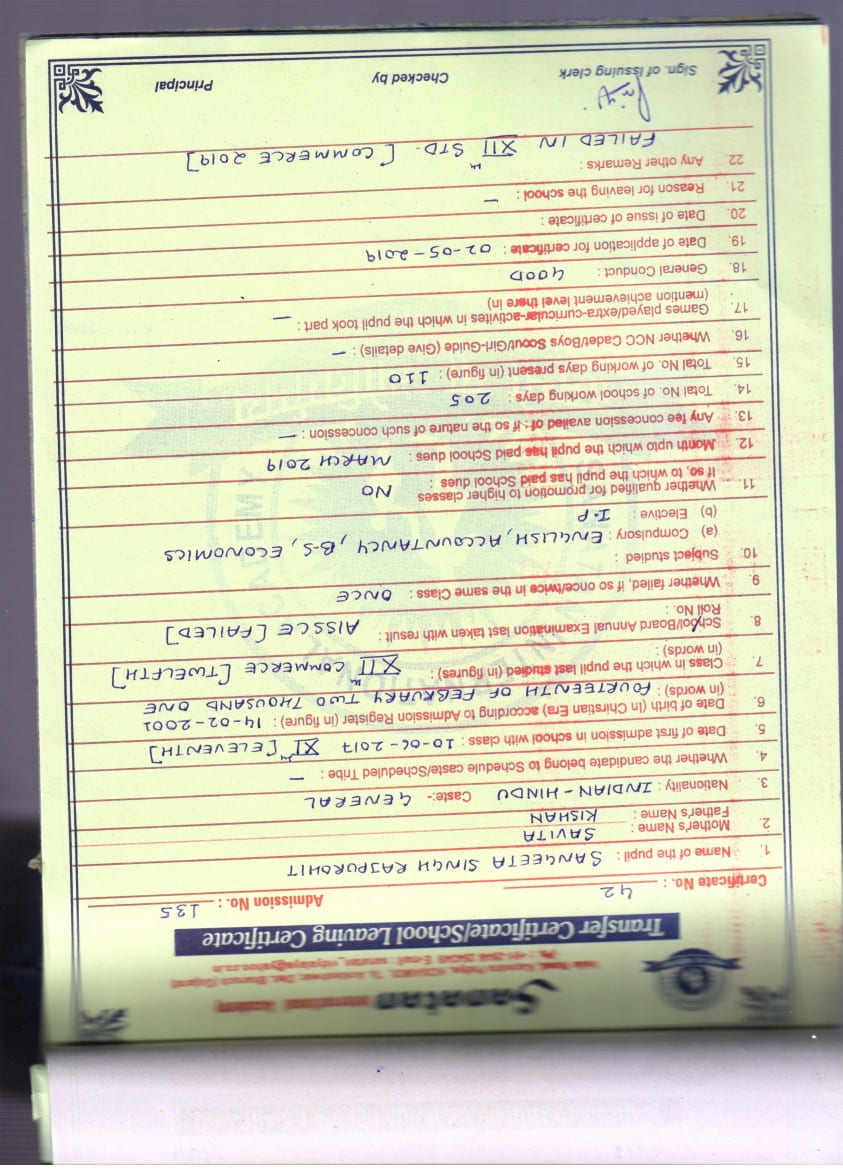 Sanatan International Academy
Transfer Certificate/School Leaving Certificate
Certificate No. : 42 Admission No. : 135
1. Name of the pupil : SANGEETA SINGH RAJPUROHIT
2. Mother's Name : SAVITA
Father's Name : KISHAN
3. Nationality : INDIAN - HINDU Caste:- GENERAL
4. Whether the candidate belong to Schedule caste/Scheduled Tribe : —
5. Date of first admission in school with class : 10-06-2017 XIth [ELEVENTH]
6. Date of birth (In Chirstian Era) according to Admission Register (in figure) : 14-02-2001
(in words) : FOURTEENTH OF FEBRUARY TWO THOUSAND ONE
7. Class in which the pupil last studied (in figures) : XIIth COMMERCE [TWELFTH]
(in words) :
8. School/Board Annual Examination last taken with result : AISSCE [FAILED]
Roll No. :
9. Whether failed, if so once/twice in the same Class : ONCE
10. Subject studied :
(a) Compulsory : ENGLISH, ACCOUNTANCY, B-S, ECONOMICS
(b) Elective : I.P
11. Whether qualified for promotion to higher classes NO
If so, to which the pupil has paid School dues :
12. Month upto which the pupil has paid School dues : MARCH 2019
13. Any fee concession availed of : if so the nature of such concession : —
14. Total No. of school working days : 205
15. Total No. of working days present (in figure) : 110
16. Whether NCC Cadet/Boys Scout/Girl-Guide (Give details) : —
17. Games played/extra-curricular-activites in which the pupil took part : —
(mention achievement level there in)
18. General Conduct : GOOD
19. Date of application for certificate : 02-05-2019
20. Date of issue of certificate :
21. Reason for leaving the school : —
22. Any other Remarks :
FAILED IN XIIth STD. [COMMERCE 2019]
Sign. of issuing clerk Checked by Principal